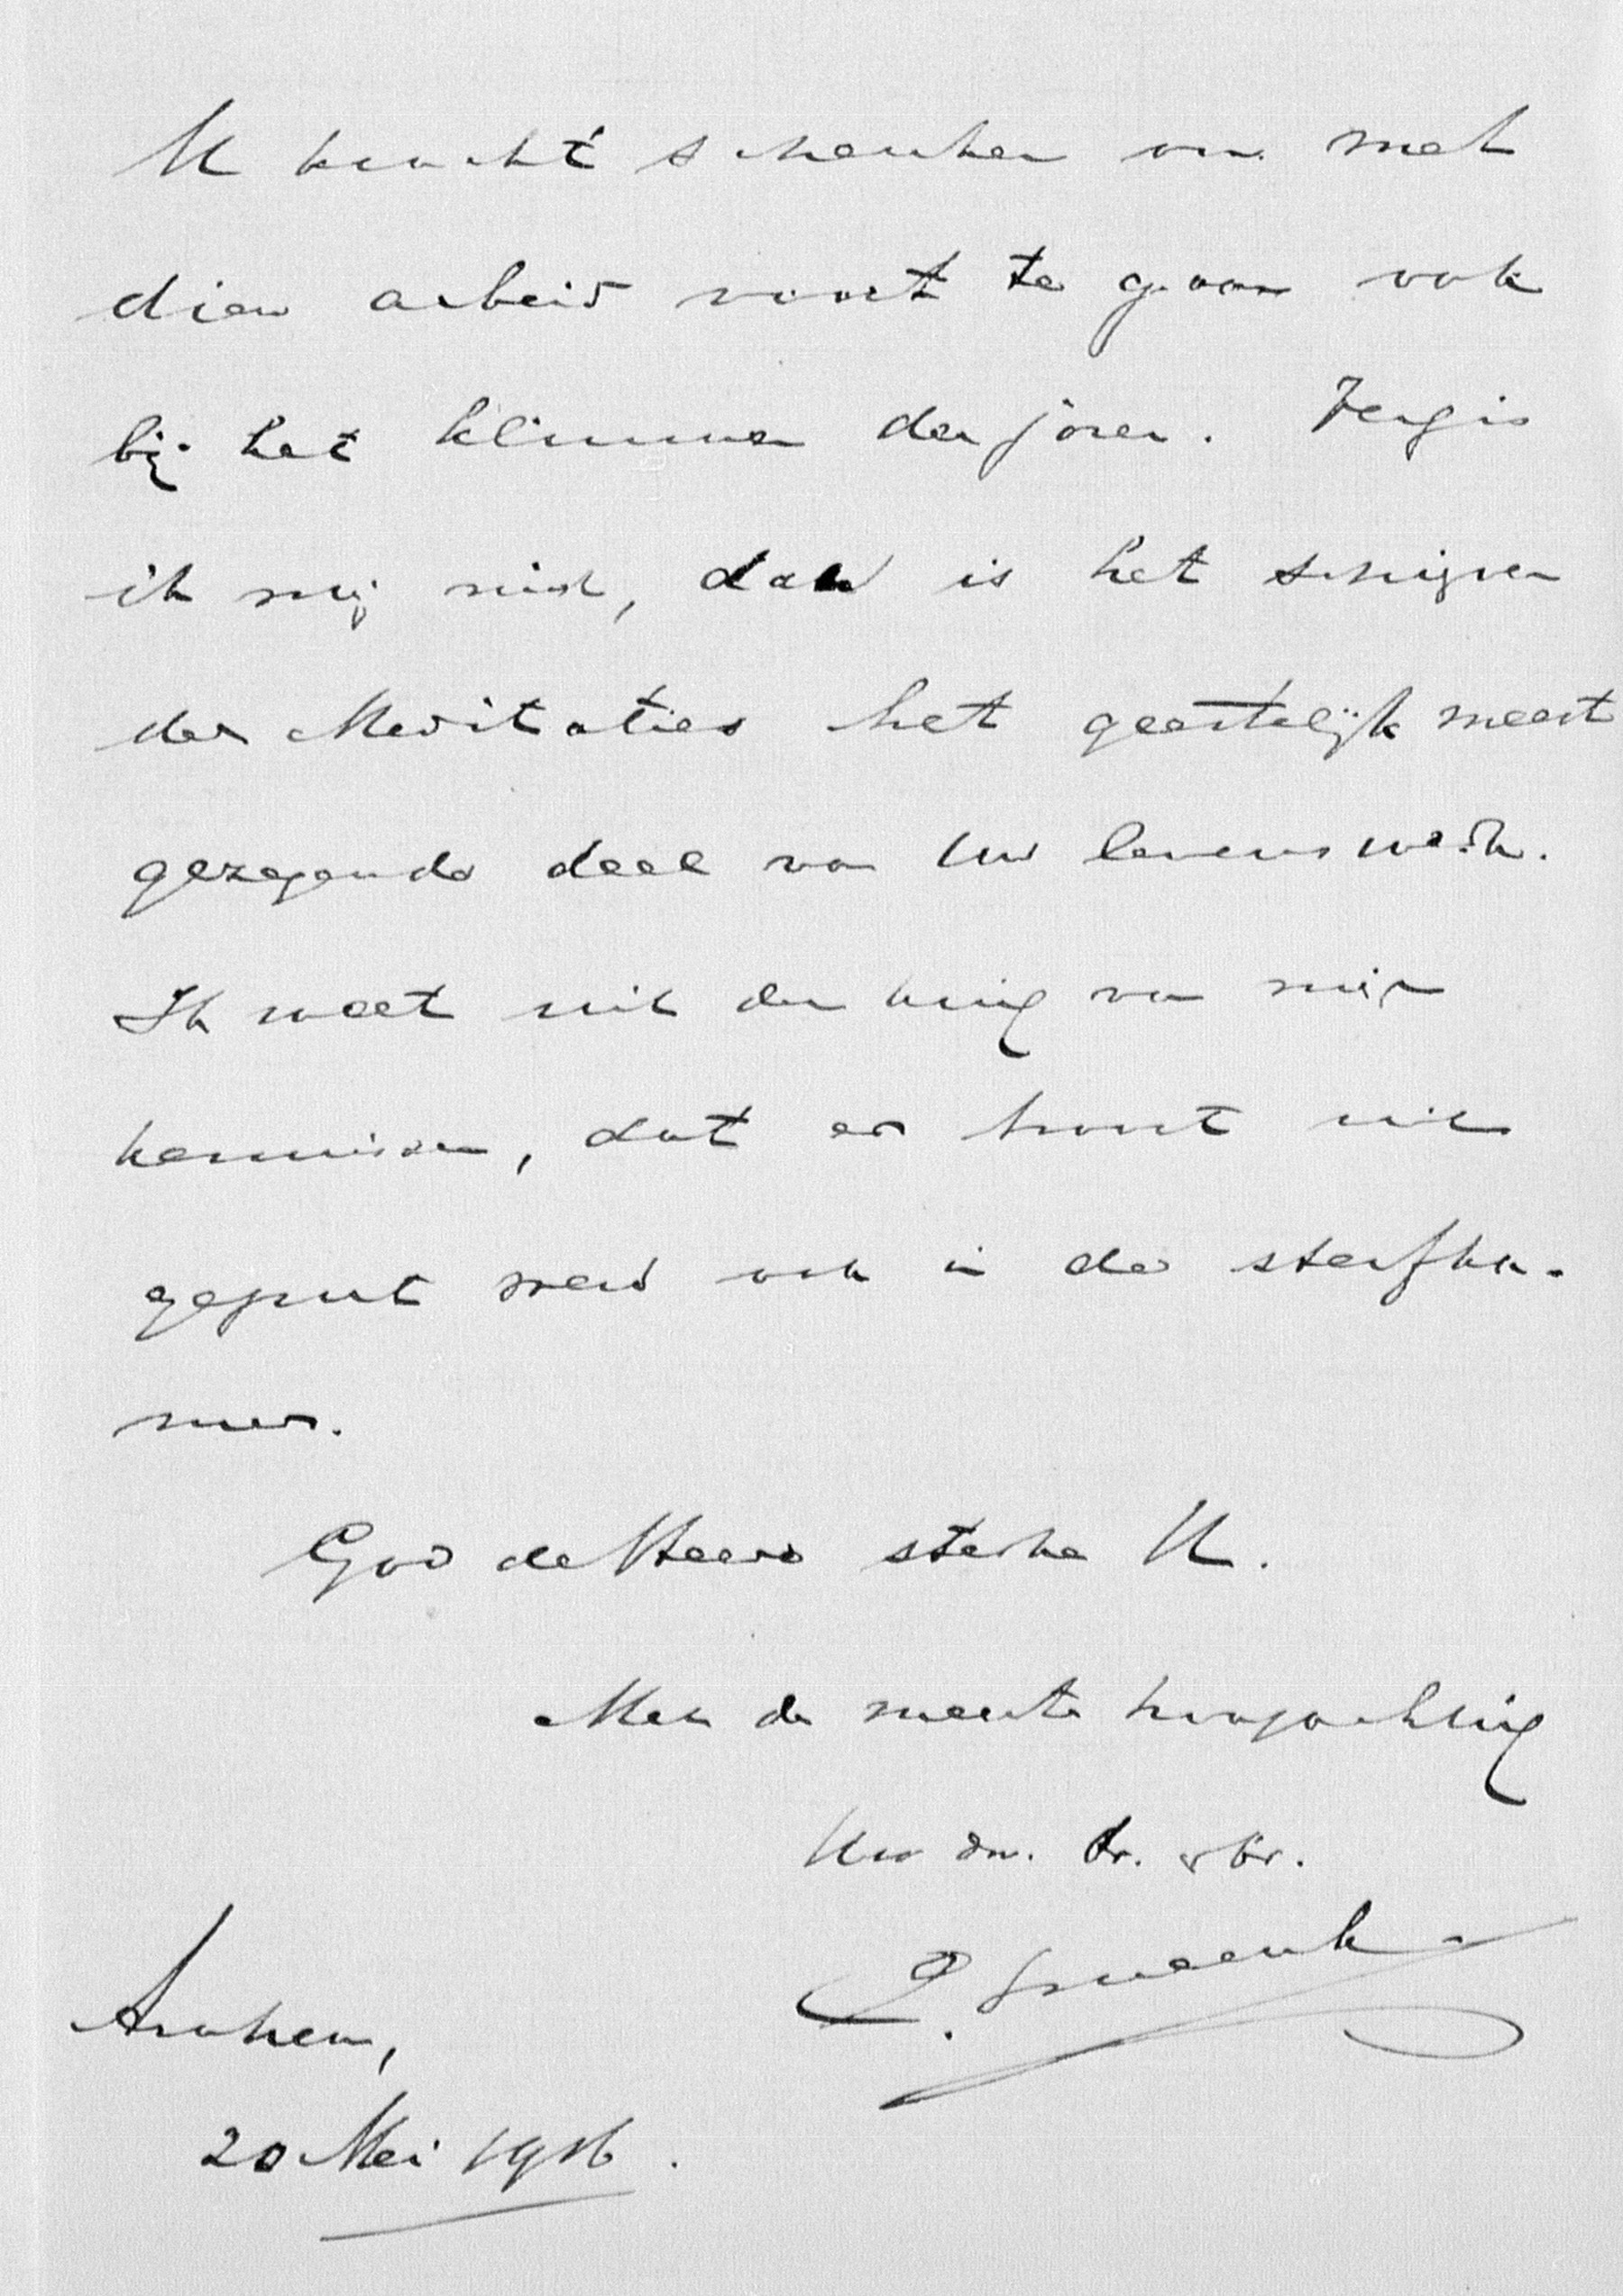 U kracht schenken om met
dien arbeid voort te gaan ook
bij het klimmen der jaren. Vergis
ik mij niet, dan is het schrijven
der Meditaties het geestelijk meest
gezegende deel van Uw levenswerk.
Ik weet uit den kring van mijn
kennissen, dat er troost uit
geput werd ook in de sterfka-
mer.
God de Heere sterke U.
Met de meeste hoogachting
Uw dw. dr. & br.
Arnhem,
20 Mei 1916.